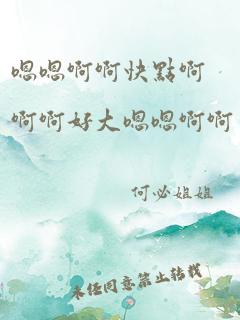 嗯嗯啊啊快點啊
啊啊好大嗯嗯啊啊
何必姐姐
未任同意禁止转载